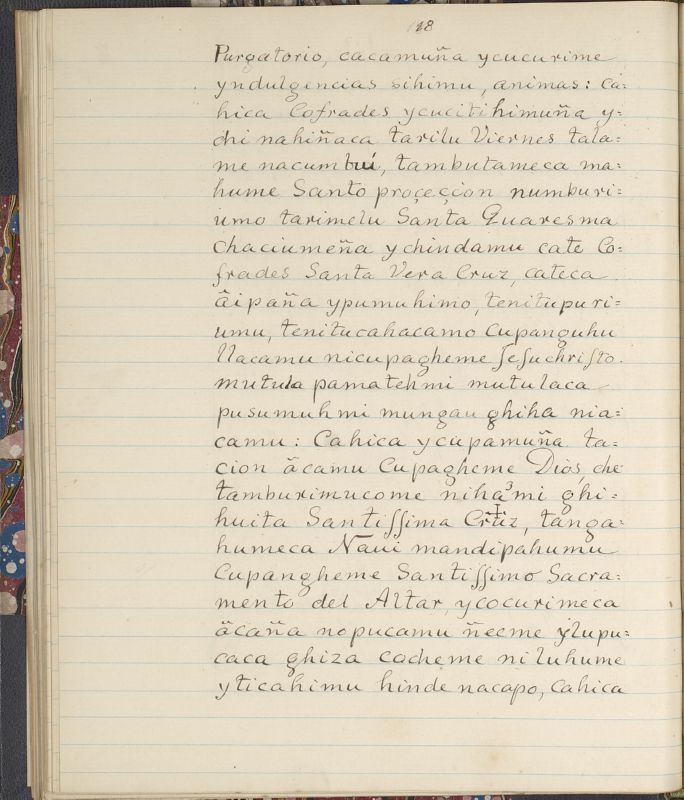 128
Purgatorio, cacamuña ycucurime
yndulgencias sihimu, animas: ca=
hica Cofrades ycucitihimuña y=
chi nahiñaca tarilu Viernes tala=
me nacumbui, tambutameca ma=
hume Santo proçeçion numburi=
umo tarimelu Santa Quaresma
chaciumeña ychindamu cate Co=
frades Santa Vera Cruz, cateca
äipaña ypumuhimo, tenitupuri=
umu, tenitucahacamo Cupanguhu
llacamu nicupagheme Jesuchriſto.
mutula pamatehmi mutulaca
pusumuhmi mungau ghiha nia=
camu: Cahica ycupamuña ta=
cion äcamu Cupagheme Dios, che
tamburimucome niha³mi ghi=
huita Santiſſima Cruz, tanga=
humeca Naui mandipahumu
Cupangheme Santiſſimo Sacra=
mento del Altar, ycocurimeca
äcaña nopucamu ñeeme ÿlupu=
caca ghiza cocheme niluhume
yticahimu hinde nacapo, Cahica